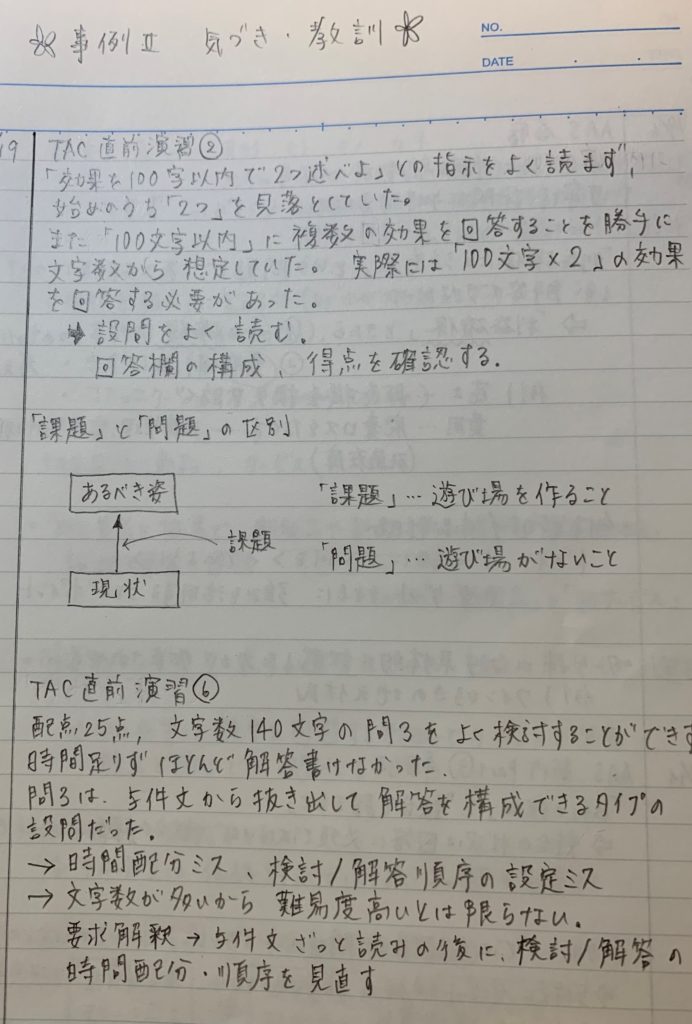 事例Ⅱ 気づき・教訓
NO.
DATE
19
TAC直前演習②
「効果を100字以内で2つ述べよ」との指示をよく読まず、
始めのうち「2つ」を見落としていた。
また「100文字以内」に複数の効果を回答することを勝手に
文字数から想定していた。 実際には「100文字×2」の効果
を回答する必要があった。
→ 設問をよく読む。
回答欄の構成、得点を確認する。
「課題」と「問題」の区別
あるべき姿
「課題」…遊び場を作ること
課題
「問題」…遊び場がないこと
現状
TAC直前演習⑥
配点25点、文字数140文字の問3をよく検討することができず
時間足りずほとんど解答書けなかった。
問3は、与件文から抜き出して解答を構成できるタイプの
設問だった。
→ 時間配分ミス、検討/解答順序の設定ミス
→ 文字数が多いから難易度高いとは限らない。
要求解釈→与件文ざっと読みの後に、検討/解答の
時間配分・順序を見直す